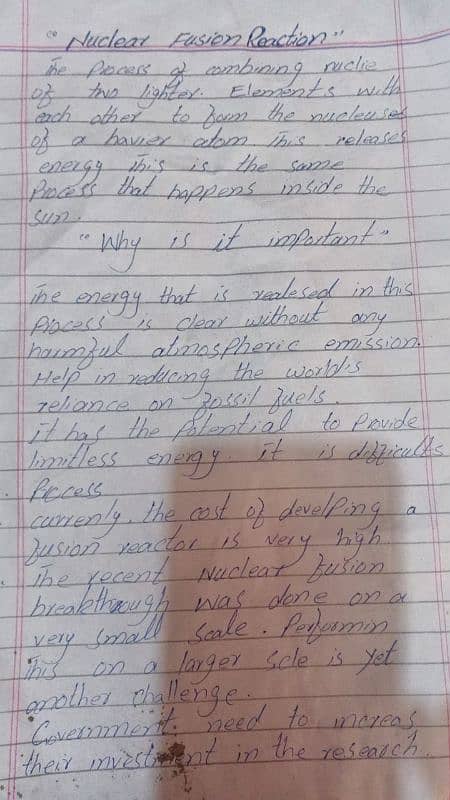 " Nuclear Fusion Reaction "
The Process of combining nuclie
of two lighter. Elements with
each other to form the nucleuses
of a havier atom. This releases
energy this is the same
Process that happens inside the
sun.
" Why is it important "
The energy that is realesed in this
Process is clear without any
harmful atmospheric emission.
Help in reducing the world's
reliance on fossil fuels.
it has the Potential to Provide
limitless energy. it is difficults
Process
currenly, the cost of develPing a
fusion reactor is very high.
The recent Nuclear fusion
breakthrough was done on a
very small Scale. Performin
This on a larger Scle is yet
another challenge.
Government. need to increas
their investment in the research.